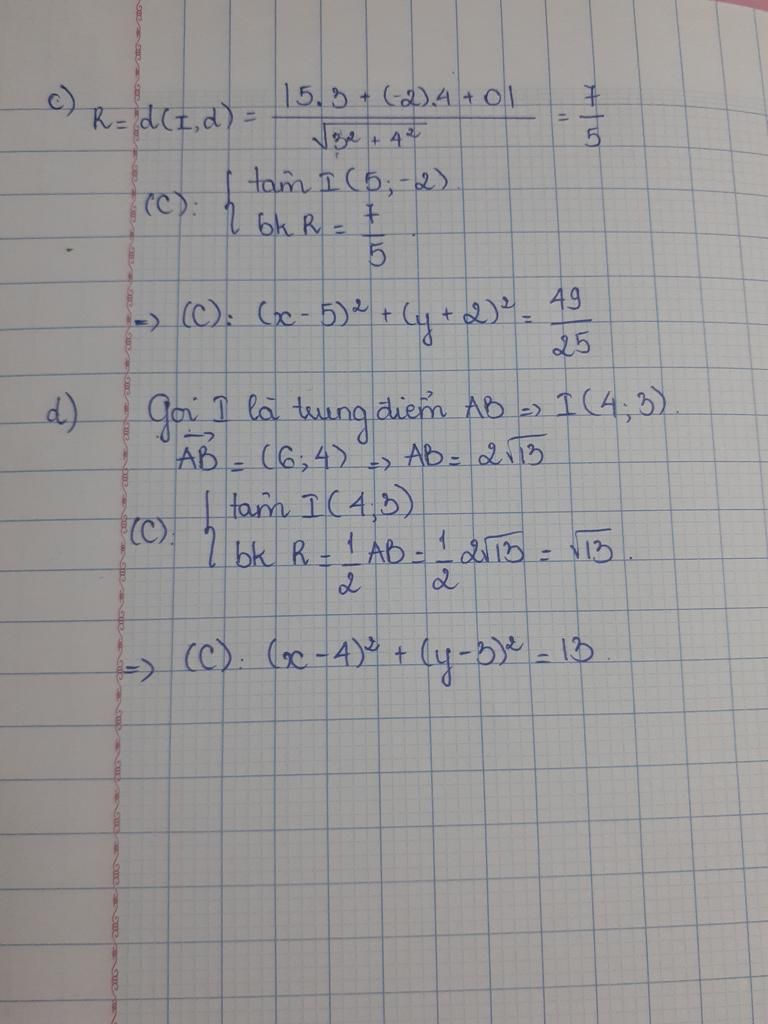 c) R = d(I,d) = |5.3 + (-2).4 + 0| / √(3² + 4²) = 7/5
(C): { tâm I(5;-2)
bk R = 7/5.
=> (C): (x - 5)² + (y + 2)² = 49/25
d) Gọi I là trung điểm AB => I(4;3).
AB→ = (6;4) => AB = 2√13
(C): { tâm I(4;3)
bk R = 1/2 AB = 1/2 2√13 = √13.
=> (C): (x - 4)² + (y - 3)² = 13.